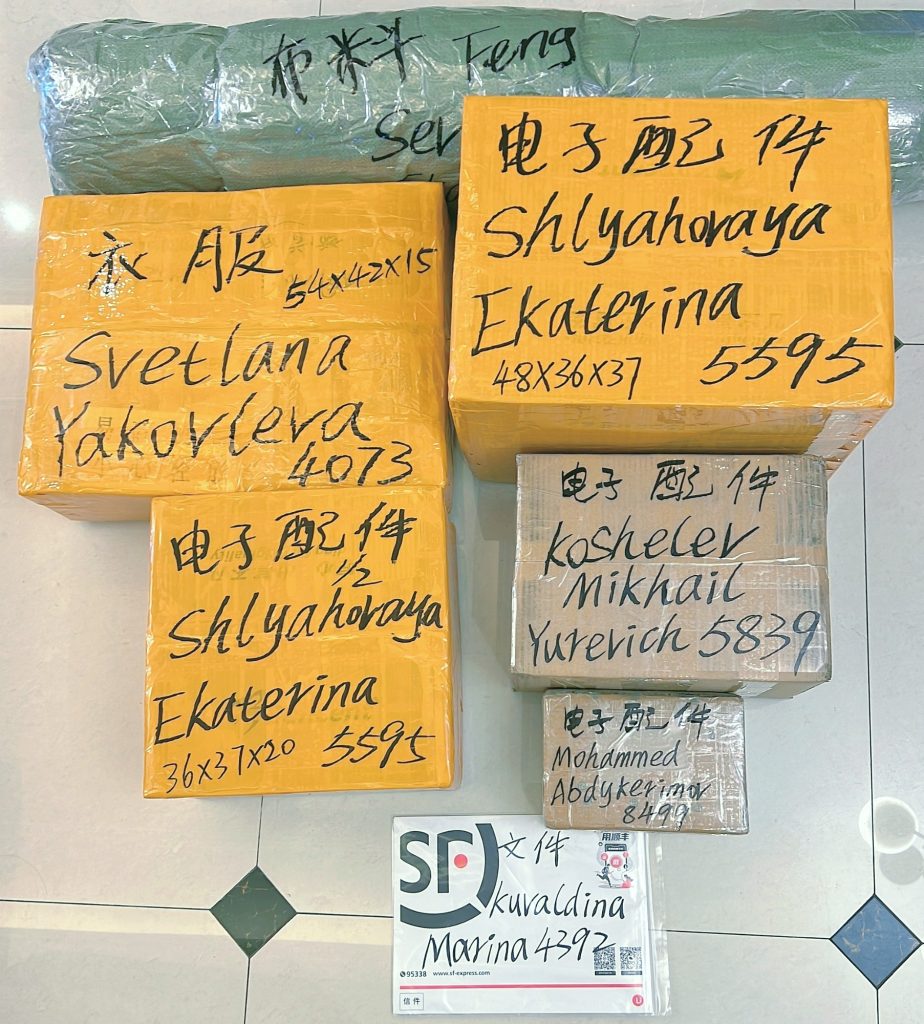 布料 Feng
电子配件
Shlyahovaya
Ekaterina
48X36X37 5595
衣服
54X42X15
Svetlana
Yakovleva
4073
电子配件
1/2
Shlyahovaya
Ekaterina
36X37X20 5595
电子配件
Koshelev
Mikhail
Yurevich 5839
电子配件
Mohammed
Abdykerimov
8499
SF
文件
用顺丰
Kuvaldina
Marina 4392
95338 www.sf-express.com
信件